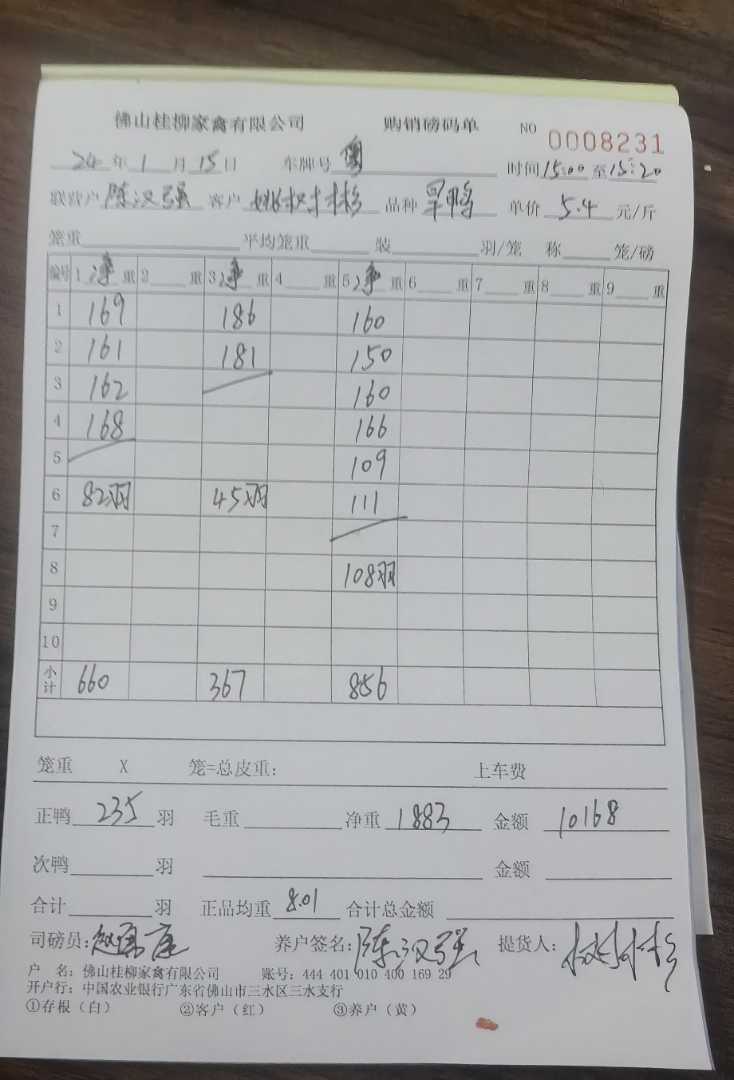 佛山桂柳家禽有限公司 购销磅码单 NO 0008231
24年1月15日 车牌号 粤 时间15:00至15:20
联营户 陈汉强 客户 姚树彬 品种 旱鸭 单价 5.4 元/斤
笼重 平均笼重 装 羽/笼 称 笼/磅
编号 1净重 2 重 3净重 4 重 5净重 6 重 7 重 8 重 9 重
1 169 186 160
2 161 181 150
3 162 160
4 168 166
5 109
6 82羽 45羽 111
7
8 108羽
9
10
小计 660 367 856
笼重 X 笼=总皮重: 上车费
正鸭 235 羽 毛重 净重 1883 金额 10168
次鸭 羽 金额
合计 羽 正品均重 8.01 合计总金额
司磅员: 养户签名: 陈汉强 提货人:
户 名: 佛山桂柳家禽有限公司 账号: 444 401 010 400 169 29
开户行: 中国农业银行广东省佛山市三水区三水支行
①存根（白） ②客户（红） ③养户（黄）